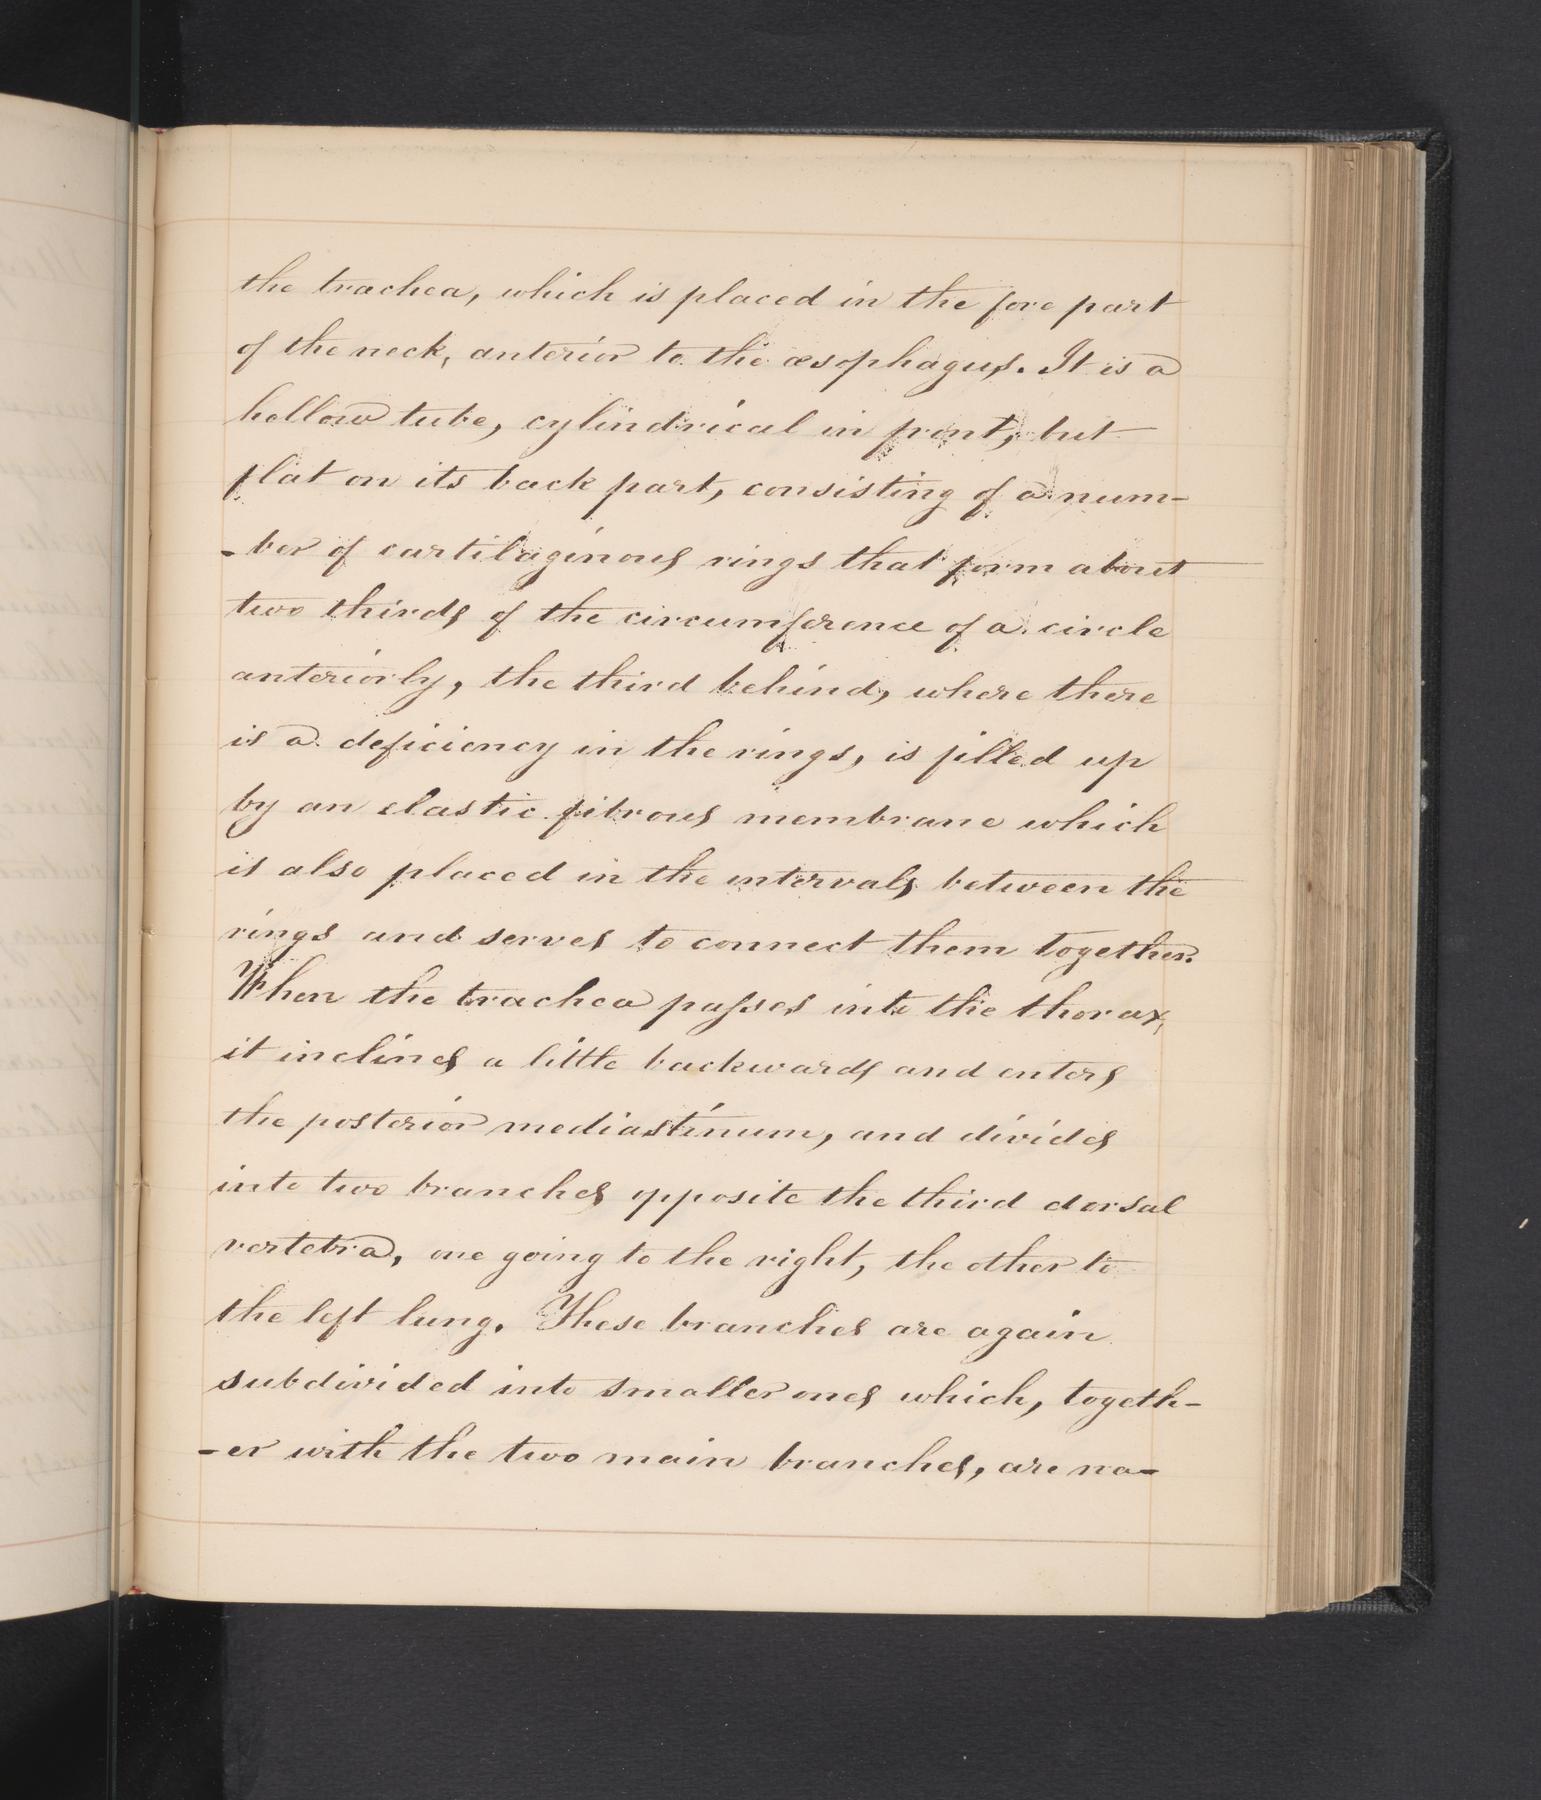 the trachea, which is placed in the fore part
of the neck, anterior to the œsophagus. It is a
hollow tube, cylindrical in front, but
flat on its back part, consisting of a num-
-ber of cartilaginous rings that form about
two thirds of the circumference of a circle
anteriorly, the third behind, where there
is a deficiency in the rings, is filled up
by an elastic fibrous membrane which
is also placed in the intervals between the
rings and serves to connect them together.
When the trachea passes into the thorax,
it inclines a little backwards and enters
the posterior mediastinum, and divides
into two branches opposite the third dorsal
vertebra, one going to the right, the other to
the left lung. These branches are again
subdivided into smaller ones which, togeth-
-er with the two main branches, are na-